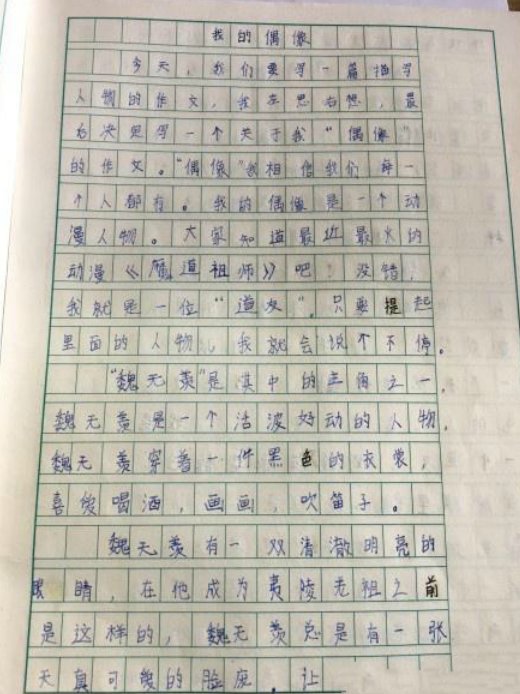 我的偶像
今天，我们要写一篇描写
人物的作文，我左思右想，最
后决定写一个关于我“偶像”
的作文。“偶像”我相信我们每一
个人都有。我的偶像是一个动
漫人物。大家知道最近最火的
动漫《魔道祖师》吧！没错，
我就是一位“道友”，只要提起
里面的人物，我就会说个不停。
“魏无羡”是其中的主角之一，
魏无羡是一个活波好动的人物，
魏无羡穿着一件黑色的衣裳，
喜爱喝酒，画画，吹笛子。
魏无羡有一双清澈明亮的
眼睛，在他成为夷陵老祖之前
是这样的，魏无羡总是有一张
天真可爱的脸庞。让